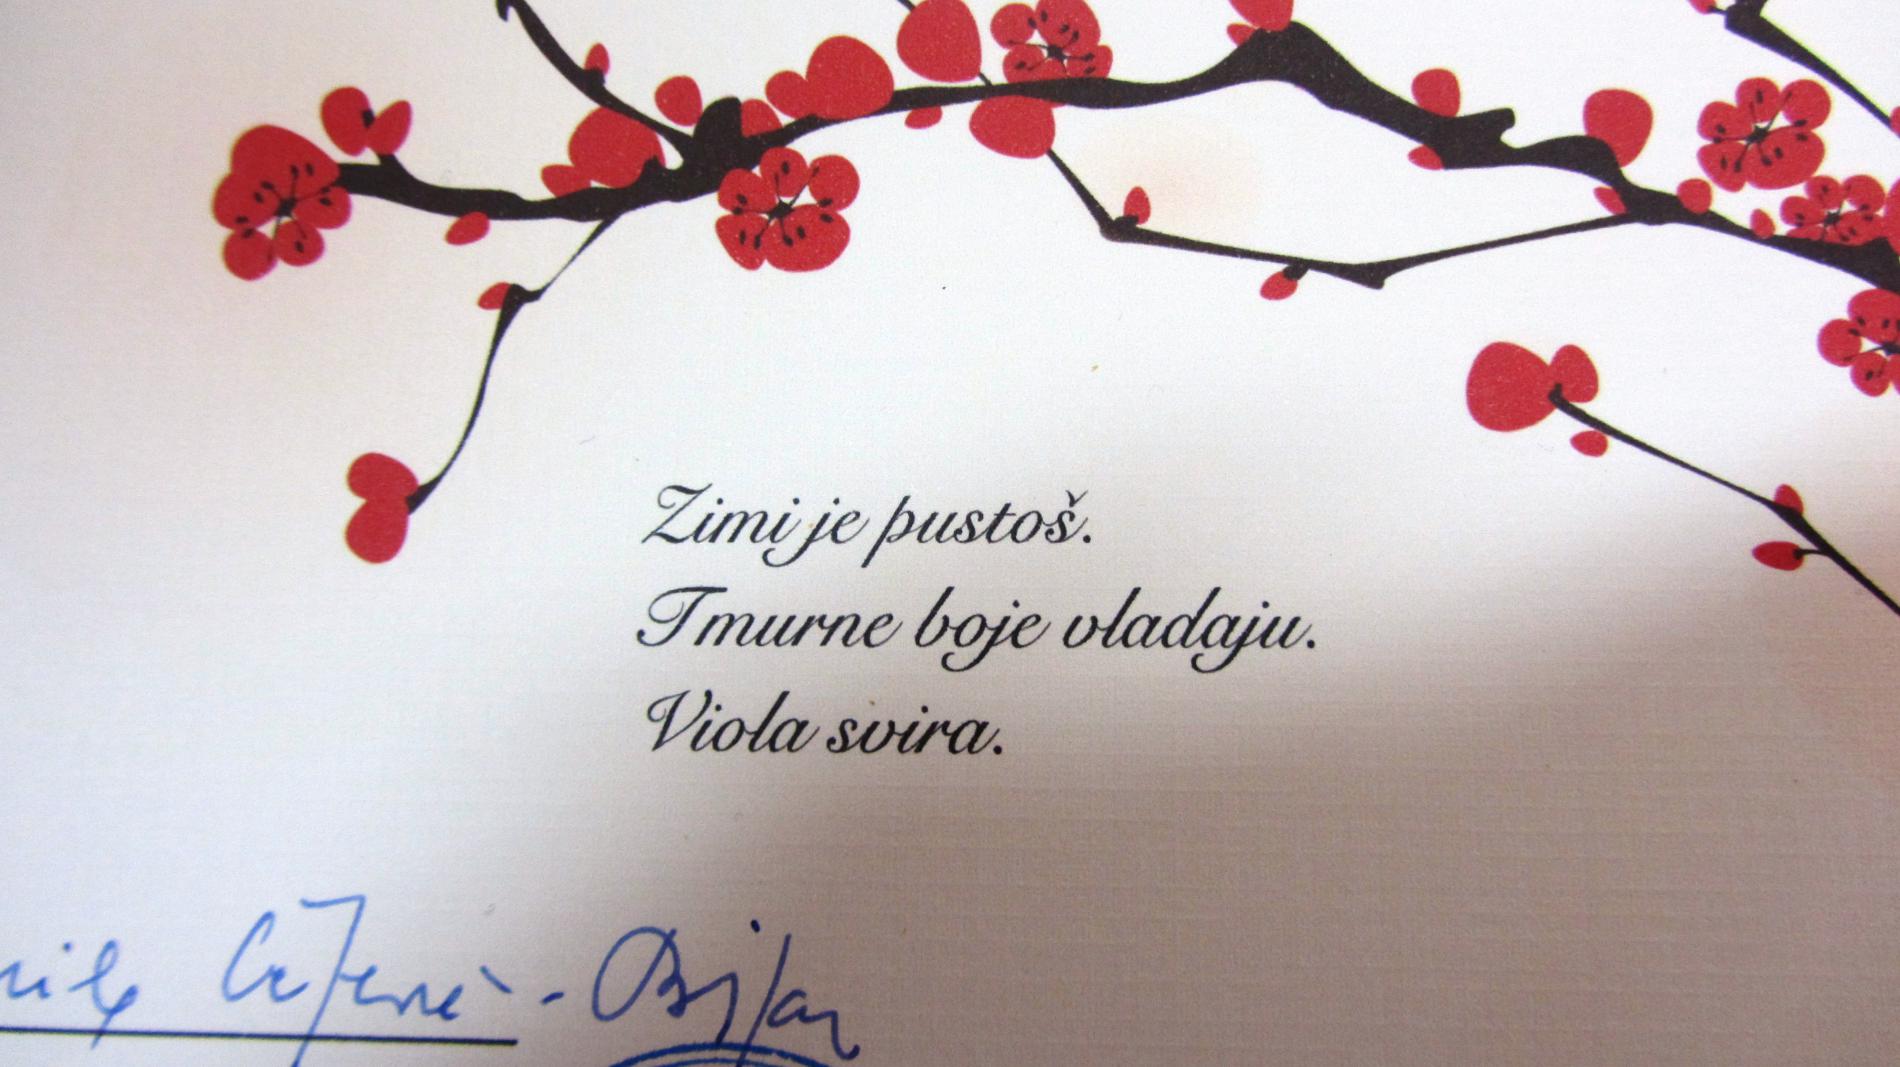 Zimi je pustoš.
Tmurne boje vladaju.
Viola svira.